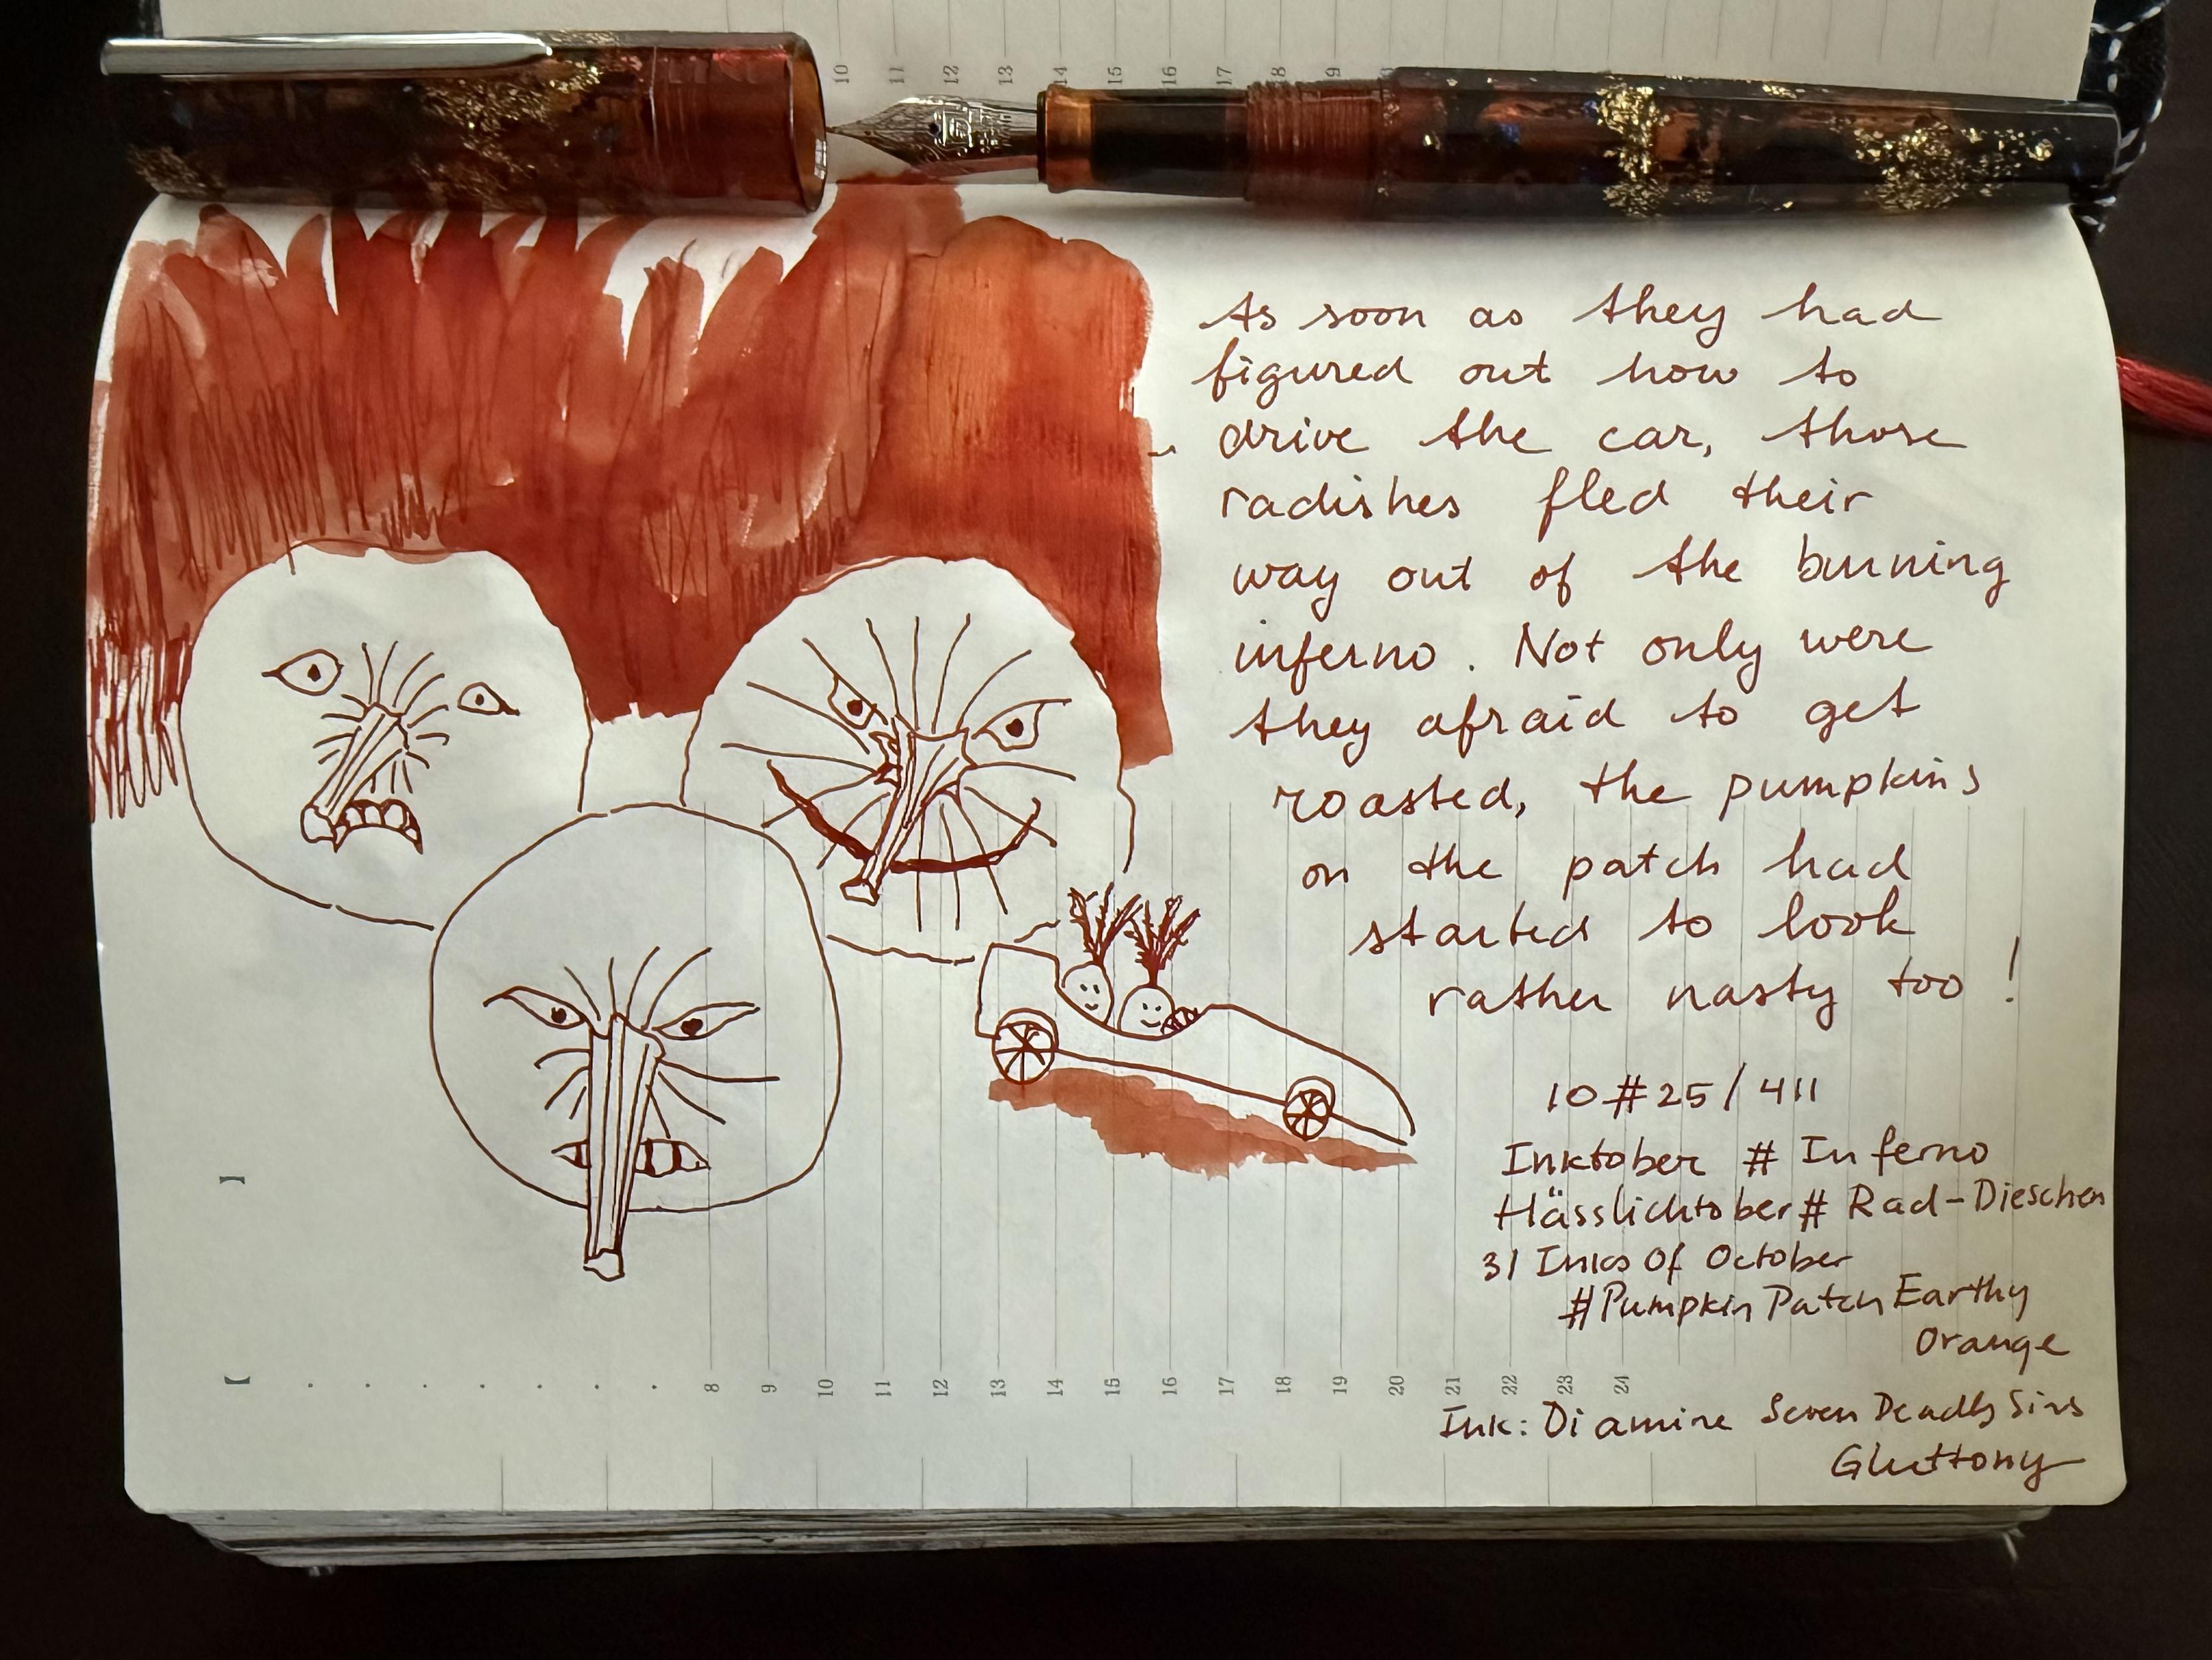 10 11 12 13 14 15 16 17 18 19
As soon as they had
figured out how to
drive the car, those
radishes fled their
way out of the burning
inferno. Not only were
they afraid to get
roasted, the pumpkins
on the patch had
started to look
rather nasty too!
10#25/411
Inktober # Inferno
Hässlichtober# Rad-Dieschen
31 Inks Of October
#Pumpkin Patch Earthy
Orange
8 9 10 11 12 13 14 15 16 17 18 19 20 21 22 23 24
Ink: Diamine Seven Deadly Sins
Gluttony